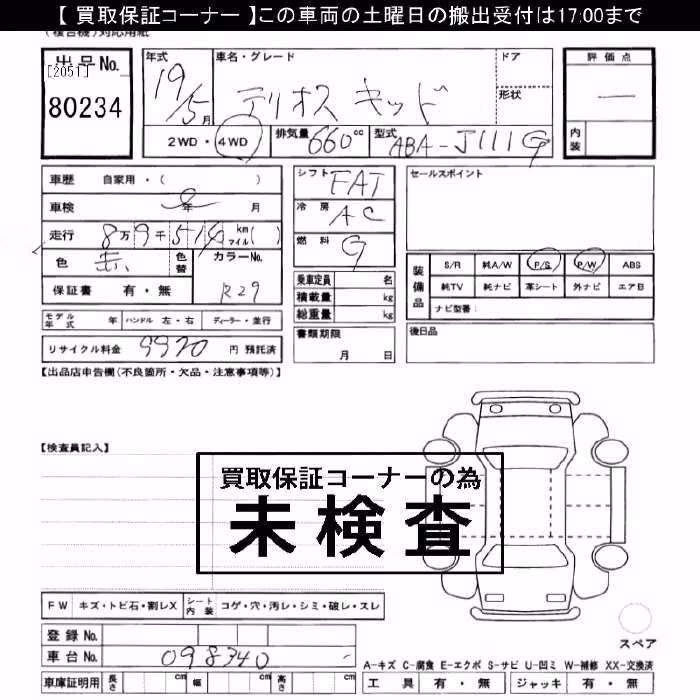 【 買取保証コーナー 】この車両の土曜日の搬出受付は17:00まで
(複合機)対応用紙
出品No. [2051] 80234
年式 19/5月 車名・グレード テリオスキッド ドア 形状
評価点 — 内装
2WD・4WD 排気量 660cc 型式 ABA-J111G
車歴 自家用・( )
車検 年 月
走行 8万9千514km マイル( )
色 赤 色替 カラーNo. R29
保証書 有・無
シフト FAT
冷房 AC
燃料 G
乗車定員 名
積載量 kg
総重量 kg
書類期限 月 日
セールスポイント
装備品 S/R 純A/W P/S P/W ABS
純TV 純ナビ 革シート 外ナビ エアB
ナビ型番:
後日品
モデル年式 年 ハンドル 左・右 ディーラー・並行
リサイクル料金 9920 円 預託済
【出品店申告欄(不良箇所・欠品・注意事項等)】
【検査員記入】
買取保証コーナーの為
未検査
FW キズ・トビ石・割レX シート内装 コゲ・穴・汚レ・シミ・破レ・スレ
登録No.
車台No. 098340
スペア
A-キズ C-腐食 E-エクボ S-サビ U-凹ミ W-補修 XX-交換済
車庫証明用 長さ cm 幅 cm 高さ cm
工具 有・無 ジャッキ 有・無